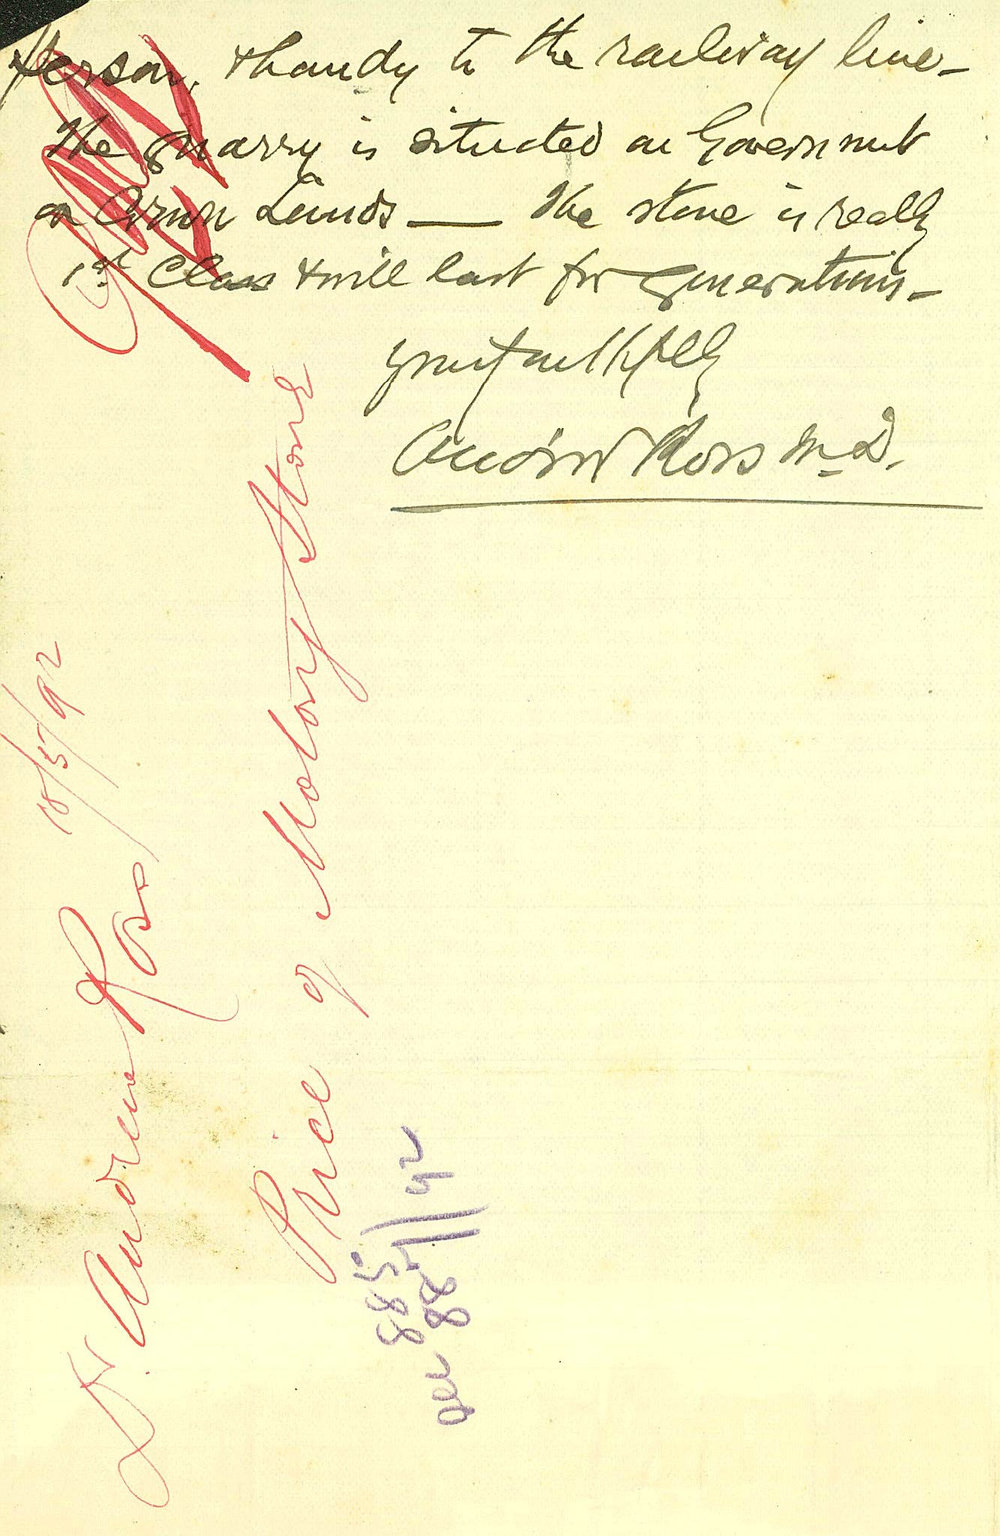 person, & handy to the railway line –
The quarry is situated on Government
or Crown Lands — The stone is really
1st Class & will last for generations –
yours faithfully
Andrew Ross M.D.
Dr. Andrew Ross 18/5/92
Price of Molong Stone
885
28/5/92